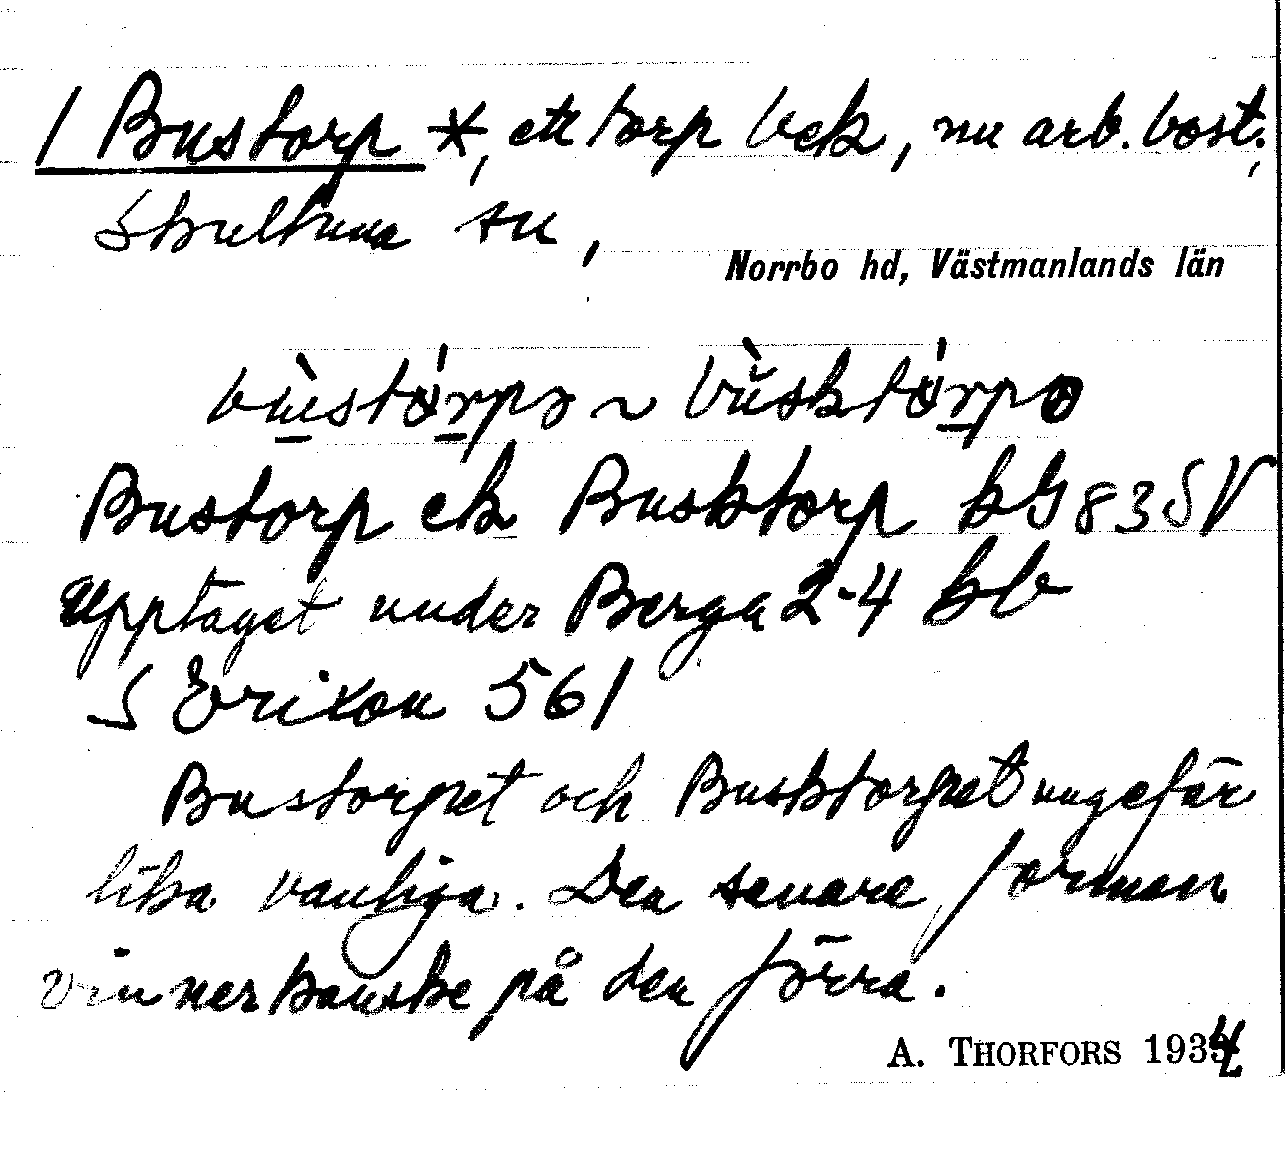 1 Bustorp *, ett torp uek, nu arb. bost.,
Skultuna sn,
Norrbo hd, Västmanlands län
bùstórpə ~ bùsktórpə
Bustorp ek Busktorp kG 83 SV
Upptaget under Berga 2-4 kb
S Erixon 561
Bustorpet och Busktorpet ungefär
lika vanliga. Den senare formen
vinner kanske på den förra.
A. THORFORS 1934